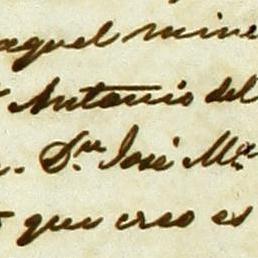 aquel mine
Antonio del
Dn. José Ma.
que creo es